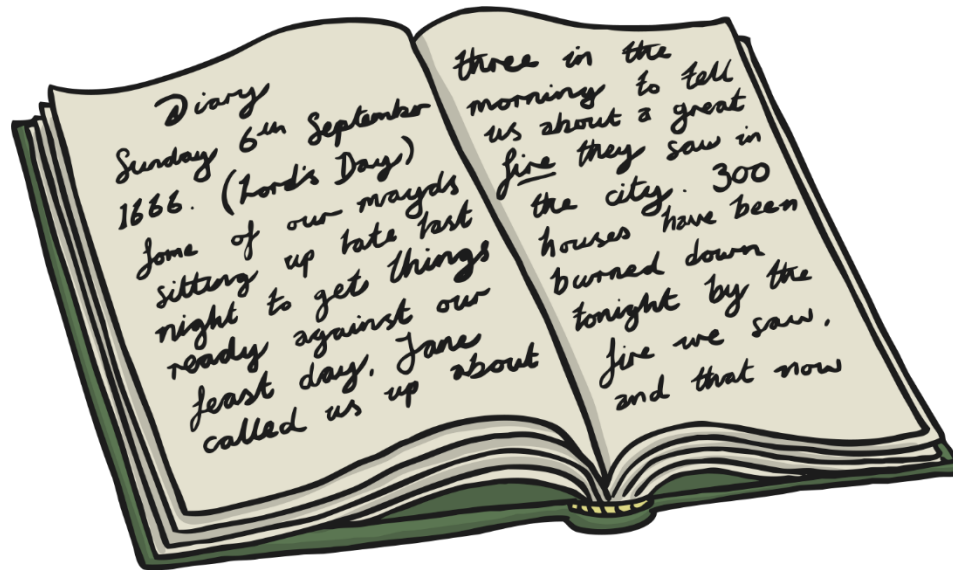 Diary
Sunday 6th September
1666. (Lord's Day)
Some of our mayds
sitting up late last
night to gets things
ready against our
feast day, Jane
called us up about
three in the
morning to tell
us about a great
fire they saw in
the city. 300
houses have been
burned down
tonight by the
fire we saw,
and that now